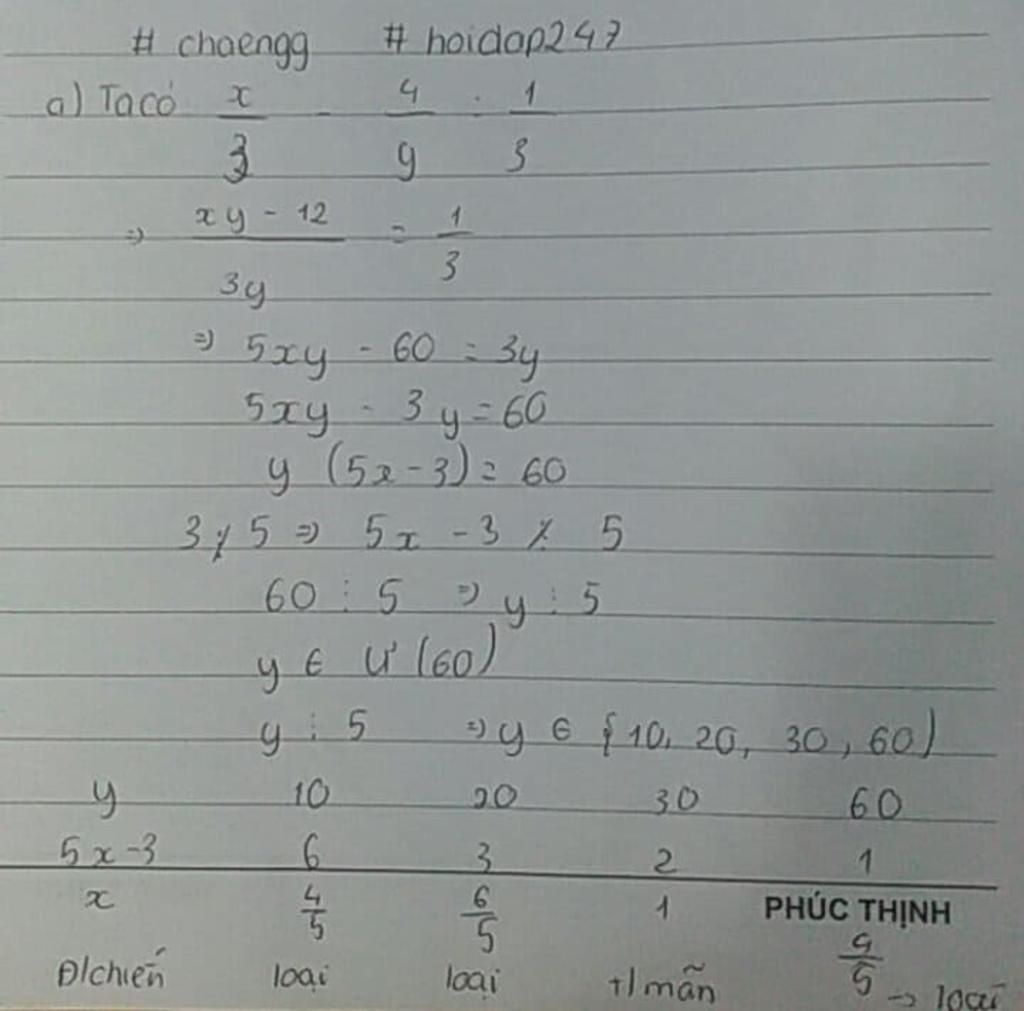 # chaengg # hoidap247
a) Ta có x/3 - 4/y = 1/3
=> xy - 12/3y = 1/3
=> 5xy - 60 = 3y
5xy - 3y = 60
y (5x - 3) = 60
3 ⋮̸ 5 => 5x - 3 ⋮̸ 5
60 ⋮ 5 => y ⋮ 5
y ∈ Ư (60)
y ⋮ 5 => y ∈ {10, 20, 30, 60)
y 10 20 30 60
5x-3 6 3 2 1
x 4/5 6/5 1 PHÚC THỊNH
Đ/chiến loại loại t/mãn 4/5 -> loại